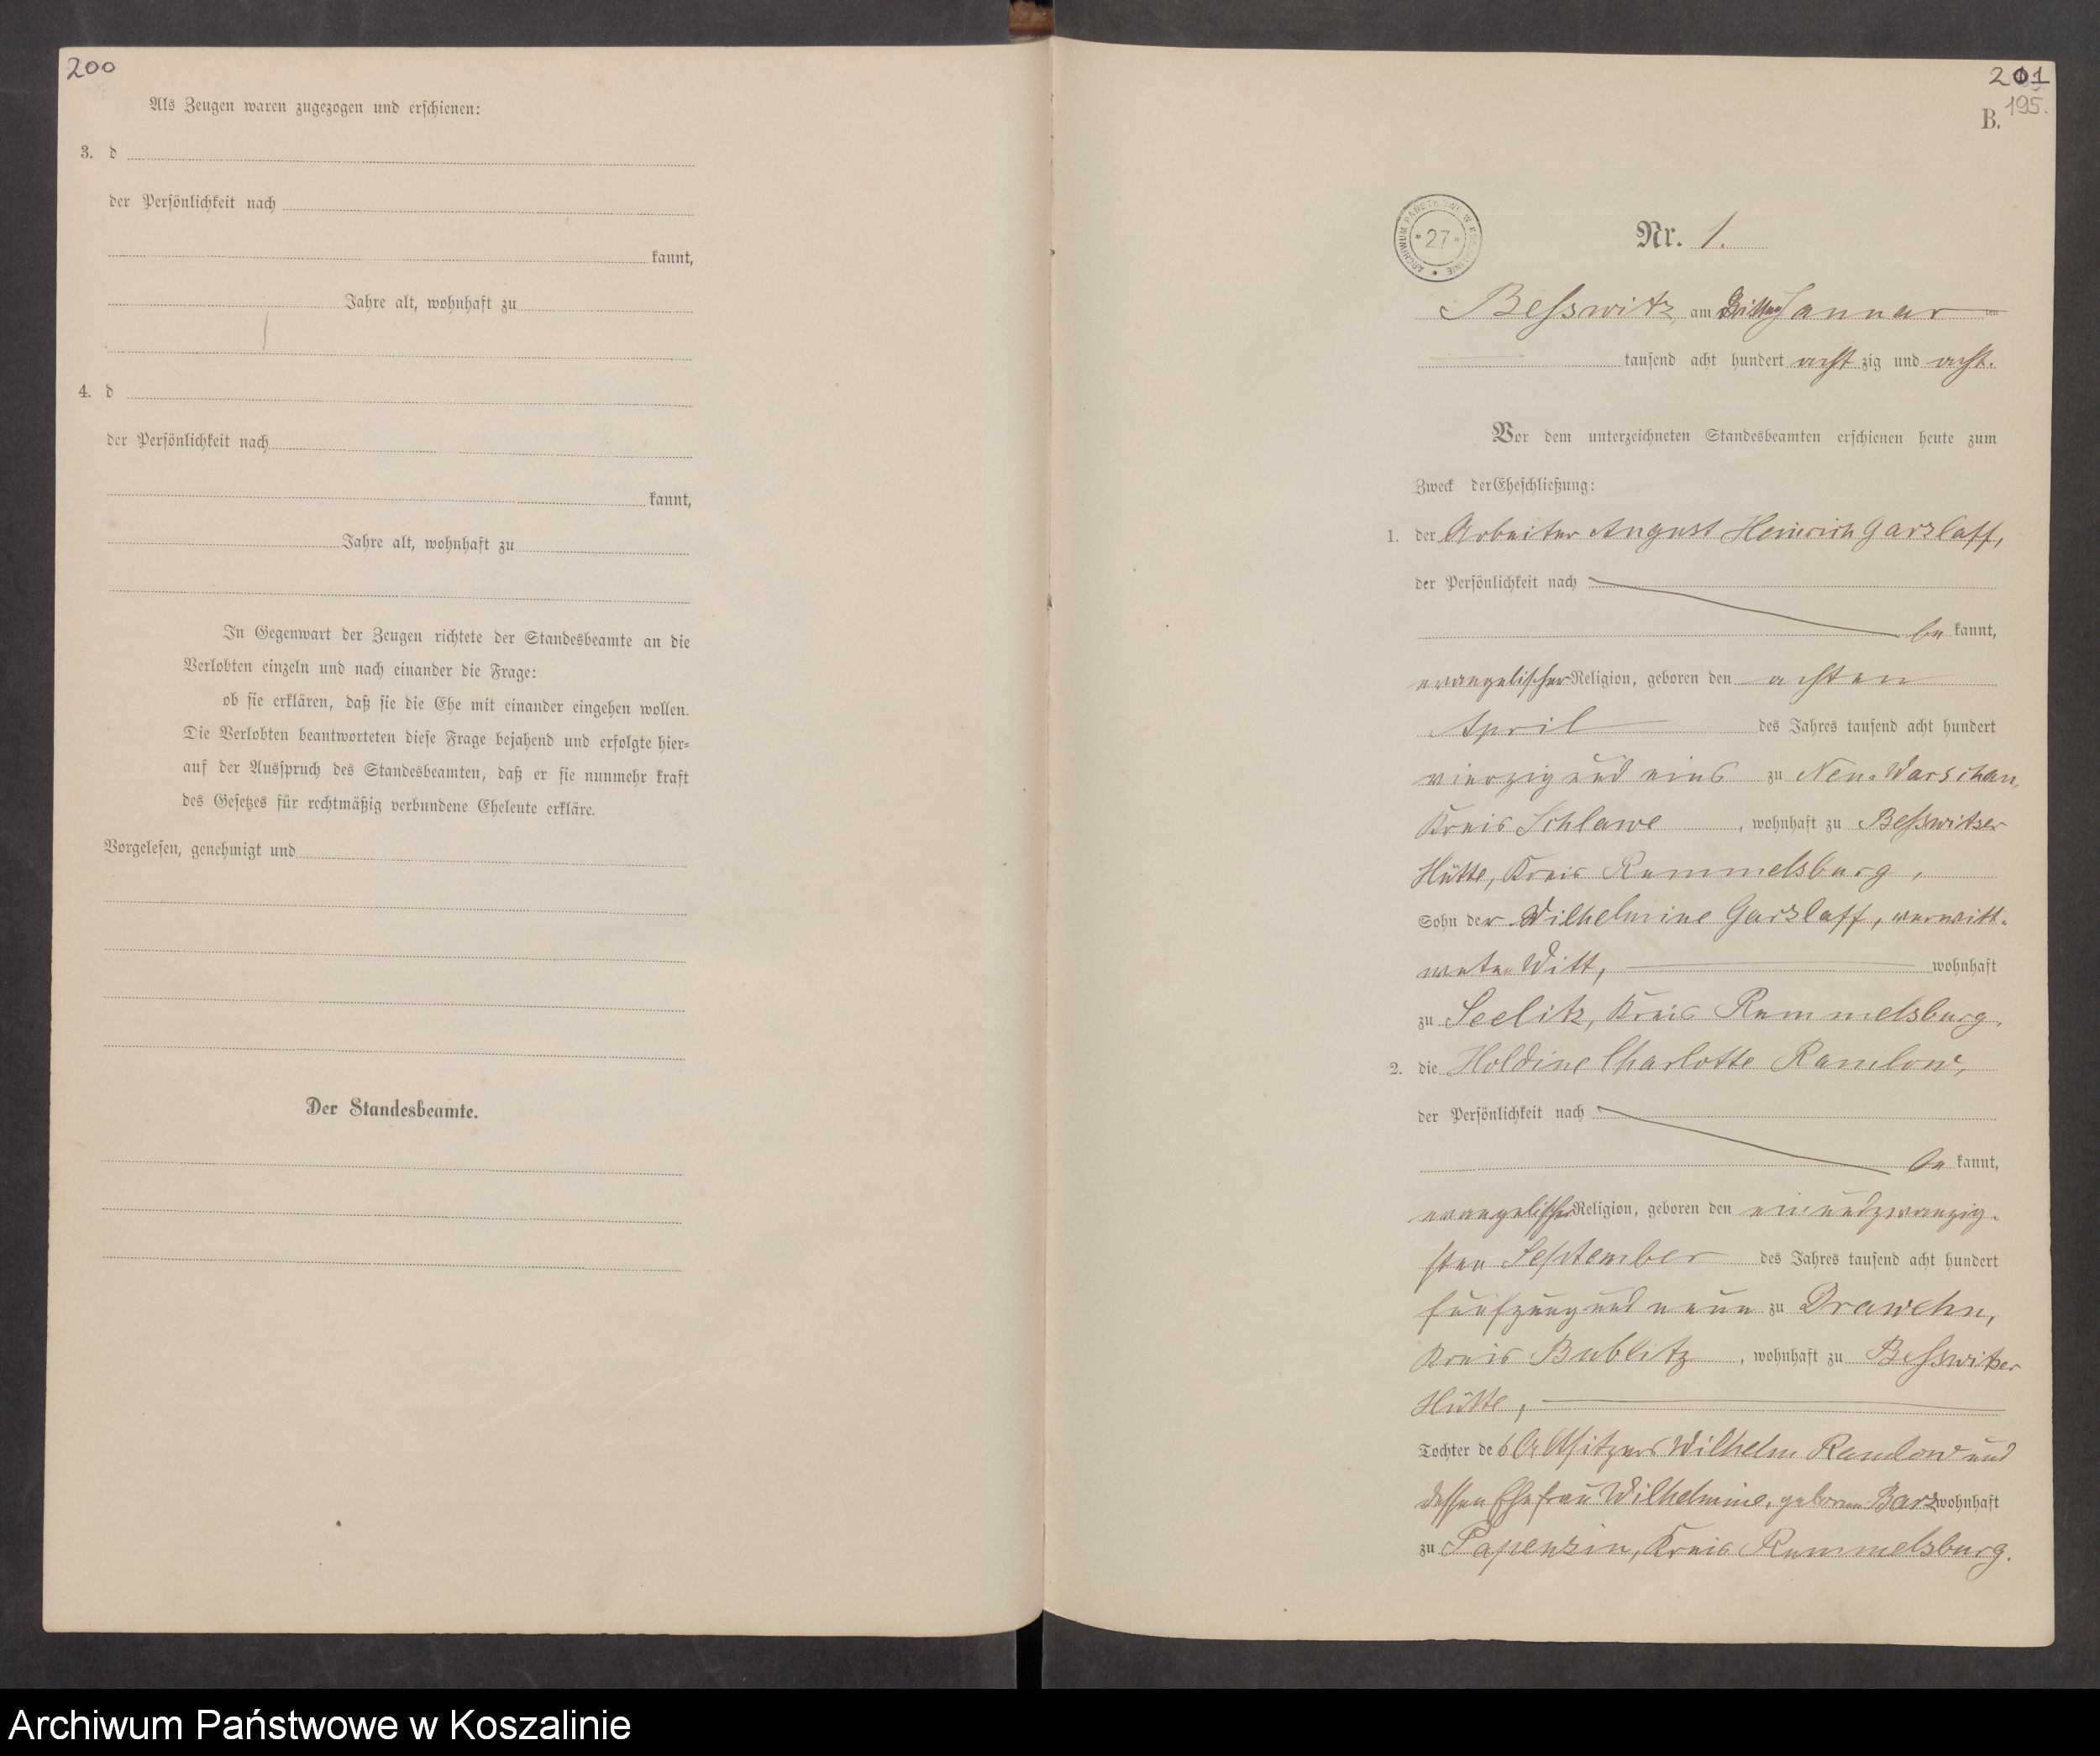 200
Als Zeugen waren zugezogen und erschienen:
3. d
der Persönlichkeit nach
kannt,
Jahre alt, wohnhaft zu
4. d
der Persönlichkeit nach
kannt,
Jahre alt, wohnhaft zu
In Gegenwart der Zeugen richtete der Standesbeamte an die
Verlobten einzeln und nach einander die Frage:
ob sie erklären, daß sie die Ehe mit einander eingehen wollen.
Die Verlobten beantworteten diese Frage bejahend und erfolgte hier=
auf der Ausspruch des Standesbeamten, daß er sie nunmehr kraft
des Gesetzes für rechtmäßig verbundene Eheleute erkläre.
Vorgelesen, genehmigt und
Der Standesbeamte.
201
195.
B.
ARCHIWUM PAŃSTWOWE W KOSZALINIE
* 27 *
Nr. 1.
Besswitz, am Dritten Januar ten
tausend acht hundert acht zig und acht.
Vor dem unterzeichneten Standesbeamten erschienen heute zum
Zweck der Eheschließung:
1. der Arbeiter August Heinrich Garzlaff,
der Persönlichkeit nach
be kannt,
evangelischer Religion, geboren den achten
April des Jahres tausend acht hundert
vierzig und eins zu Neu-Warschau,
Kreis Schlawe, wohnhaft zu Besswitzer
Hütte, Kreis Rummelsburg,
Sohn der Wilhelmine Garzlaff, verwitt-
weten Witt, wohnhaft
zu Seelitz, Kreis Rummelsburg.
2. die Holdine Charlotte Ramlow,
der Persönlichkeit nach
be kannt,
evangelischer Religion, geboren den ein und zwanzig-
sten September des Jahres tausend acht hundert
fünfzig und neun zu Drawehn,
Kreis Bublitz, wohnhaft zu Besswitzer
Hütte,
Tochter des Altsitzers Wilhelm Ramlow und
dessen Ehefrau Wilhelmine, geboren Barz wohnhaft
zu Papenzin, Kreis Rummelsburg.
Archiwum Państwowe w Koszalinie